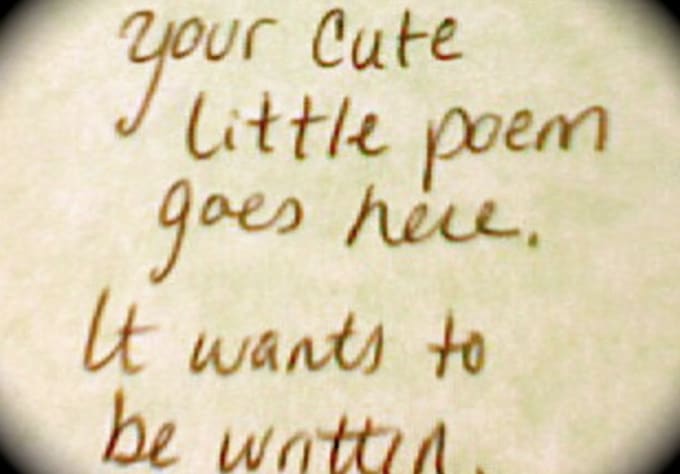 your cute
little poem
goes here.
It wants to
be written.